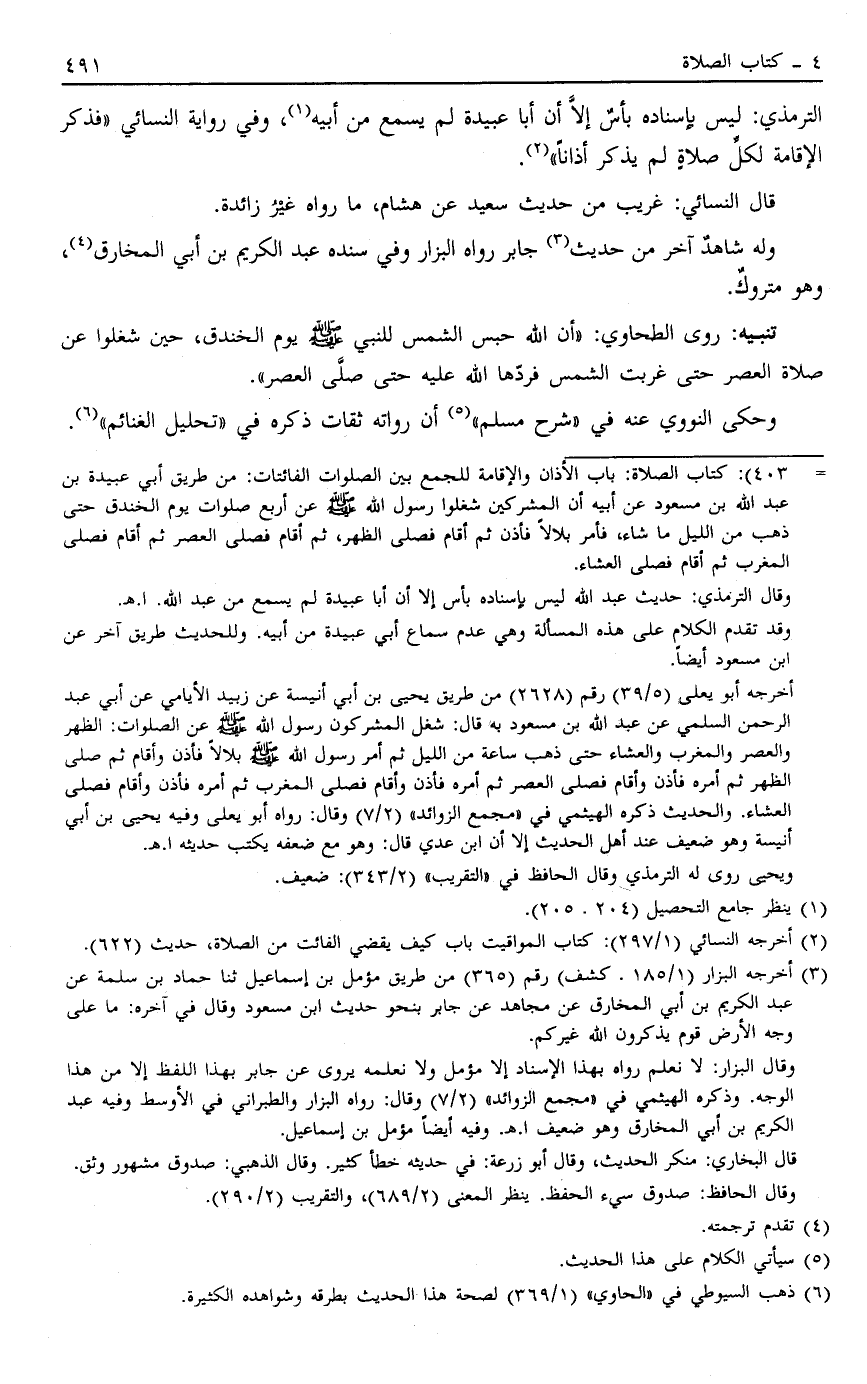 ٤ ـ كتاب الصلاة ٤٩١
الترمذي: ليس بإسناده بأسٌ إلاَّ أن أبا عبيدة لم يسمع من أبيه(١)، وفي رواية النسائي «فذكر
الإقامة لكلِّ صلاةٍ لم يذكر أذاناً»(٢).
قال النسائي: غريب من حديث سعيد عن هشام، ما رواه غيْرُ زائدة.
وله شاهدٌ آخر من حديث(٣) جابر رواه البزار وفي سنده عبد الكريم بن أبي المخارق(٤)،
وهو متروكٌ.
تنبيه: روى الطحاوي: «أن الله حبس الشمس للنبي ﷺ يوم الخندق، حين شغلوا عن
صلاة العصر حتى غربت الشمس فردّها الله عليه حتى صلَّى العصر».
وحكى النووي عنه في «شرح مسلم»(٥) أن رواته ثقات ذكره في «تحليل الغنائم»(٦).
= ٤٠٣): كتاب الصلاة: باب الأذان والإقامة للجمع بين الصلوات الفائتات: من طريق أبي عبيدة بن
عبد الله بن مسعود عن أبيه أن المشركين شغلوا رسول الله ﷺ عن أربع صلوات يوم الخندق حتى
ذهب من الليل ما شاء، فأمر بلالاً فأذن ثم أقام فصلى الظهر، ثم أقام فصلى العصر ثم أقام فصلى
المغرب ثم أقام فصلى العشاء.
وقال الترمذي: حديث عبد الله ليس بإسناده بأس إلا أن أبا عبيدة لم يسمع من عبد الله. ا.هـ.
وقد تقدم الكلام على هذه المسألة وهي عدم سماع أبي عبيدة من أبيه. وللحديث طريق آخر عن
ابن مسعود أيضاً.
أخرجه أبو يعلى (٣٩/٥) رقم (٢٦٢٨) من طريق يحيى بن أبي أنيسة عن زبيد الأيامي عن أبي عبد
الرحمن السلمي عن عبد الله بن مسعود به قال: شغل المشركون رسول الله ﷺ عن الصلوات: الظهر
والعصر والمغرب والعشاء حتى ذهب ساعة من الليل ثم أمر رسول الله ﷺ بلالاً فأذن وأقام ثم صلى
الظهر ثم أمره فأذن وأقام فصلى العصر ثم أمره فأذن وأقام فصلى المغرب ثم أمره فأذن وأقام فصلى
العشاء. والحديث ذكره الهيثمي في «مجمع الزوائد» (٧/٢) وقال: رواه أبو يعلى وفيه يحيى بن أبي
أنيسة وهو ضعيف عند أهل الحديث إلا أن ابن عدي قال: وهو مع ضعفه يكتب حديثه ا.هـ.
ويحيى روى له الترمذي وقال الحافظ في «التقريب» (٣٤٣/٢): ضعيف.
(١) ينظر جامع التحصيل (٢٠٤ ـ ٢٠٥).
(٢) أخرجه النسائي (٢٩٧/١): كتاب المواقيت باب كيف يقضي الفائت من الصلاة، حديث (٦٢٢).
(٣) أخرجه البزار (١٨٥/١ ـ كشف) رقم (٣٦٥) من طريق مؤمل بن إسماعيل ثنا حماد بن سلمة عن
عبد الكريم بن أبي المخارق عن مجاهد عن جابر بنحو حديث ابن مسعود وقال في آخره: ما على
وجه الأرض قوم يذكرون الله غيركم.
وقال البزار: لا نعلم رواه بهذا الإسناد إلا مؤمل ولا نعلمه يروى عن جابر بهذا اللفظ إلا من هذا
الوجه. وذكره الهيثمي في «مجمع الزوائد» (٧/٢) وقال: رواه البزار والطبراني في الأوسط وفيه عبد
الكريم بن أبي المخارق وهو ضعيف ا.هـ. وفيه أيضاً مؤمل بن إسماعيل.
قال البخاري: منكر الحديث، وقال أبو زرعة: في حديثه خطأ كثير. وقال الذهبي: صدوق مشهور وثق.
وقال الحافظ: صدوق سيء الحفظ. ينظر المعنى (٦٨٩/٢)، والتقريب (٢٩٠/٢).
(٤) تقدم ترجمته.
(٥) سيأتي الكلام على هذا الحديث.
(٦) ذهب السيوطي في «الحاوي» (٣٦٩/١) لصحة هذا الحديث بطرقه وشواهده الكثيرة.